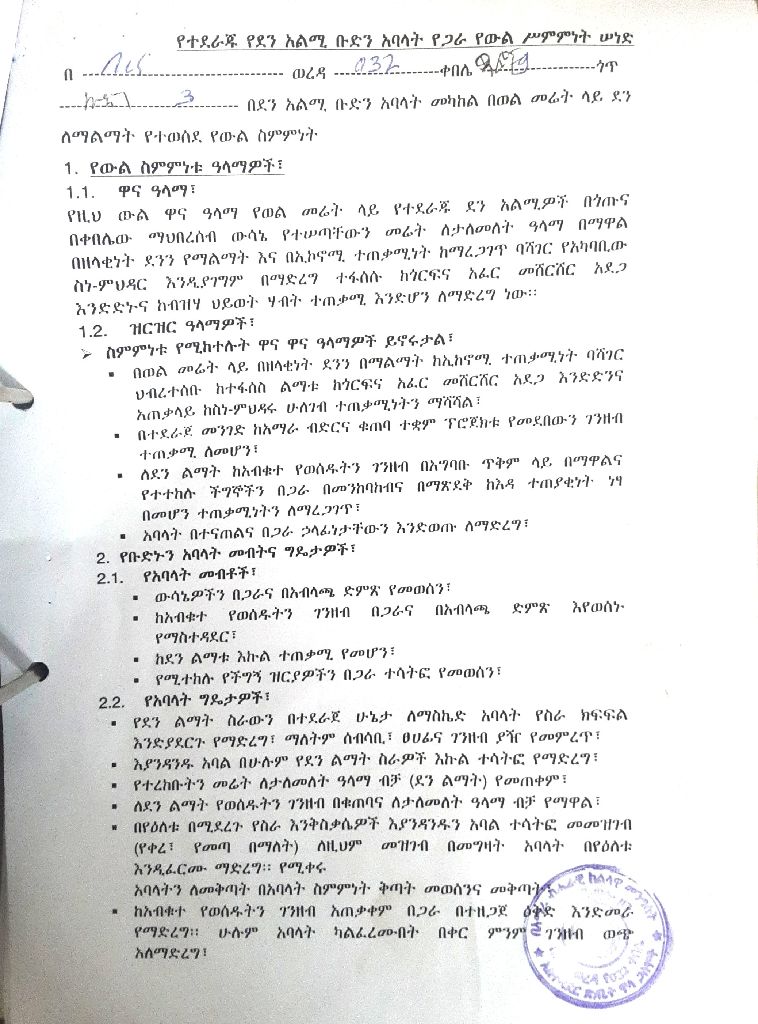 የተደራጁ የደን አልሚ ቡድን አባላት የጋራ የውል ሥምምነት ሠነድ
በ ወረዳ 032 ቀበሌ ጎጥ
3 በደን አልሚ ቡድን አባላት መካከል በወል መሬት ላይ ደን
ለማልማት የተወሰደ የውል ስምምነት
1. የውል ስምምነቱ ዓላማዎች፣
1.1. ዋና ዓላማ፣
የዚህ ውል ዋና ዓላማ የወል መሬት ላይ የተደራጁ ደን አልሚዎች በጎጡና
በቀበሌው ማህበረሰብ ውሳኔ የተሠጣቸውን መሬት ለታለመለት ዓላማ በማዋል
በዘላቂነት ደንን የማልማት እና በኢኮኖሚ ተጠቃሚነት ከማረጋገጥ ባሻገር የአካባቢው
ስነ-ምህዳር እንዲያገግም በማድረግ ተፋሰሱ ከጎርፍና አፈር መሸርሸር አደጋ
እንድድኑና ከብዝሃ ህይወት ሃብት ተጠቃሚ እንድሆን ለማድረግ ነው።
1.2. ዝርዝር ዓላማዎች፣
➢ ስምምነቱ የሚከተሉት ዋና ዋና ዓላማዎች ይኖሩታል፣
▪ በወል መሬት ላይ በዘላቂነት ደንን በማልማት ከኢኮኖሚ ተጠቃሚነት ባሻገር
ህብረተሰቡ ከተፋሰስ ልማቱ ከጎርፍና አፈር መሸርሸር አደጋ እንድድንና
አጠቃላይ ከስነ-ምህዳሩ ሁለገብ ተጠቃሚነትን ማሻሻል፣
▪ በተደራጀ መንገድ ከአማራ ብድርና ቁጠባ ተቋም ፕሮጀክቱ የመደበውን ገንዘብ
ተጠቃሚ ለመሆን፣
▪ ለደን ልማት ከአብቁተ የወሰዱትን ገንዘብ በአግባቡ ጥቅም ላይ በማዋልና
የተተከሉ ችግኞችን በጋራ በመንከባከብና በማጽደቅ ከእዳ ተጠያቂነት ነፃ
በመሆን ተጠቃሚነትን ለማረጋገጥ፣
▪ አባላት በተናጠልና በጋራ ኃላፊነታቸውን እንድወጡ ለማድረግ፣
2. የቡድኑን አባላት መብትና ግዴታዎች፣
2.1. የአባላት መብቶች፣
▪ ውሳኔዎችን በጋራና በአብላጫ ድምጽ የመወሰን፣
▪ ከአብቁተ የወሰዱትን ገንዘብ በጋራና በአብላጫ ድምጽ እየወሰኑ
የማስተዳደር፣
▪ ከደን ልማቱ እኩል ተጠቃሚ የመሆን፣
▪ የሚተከሉ የችግኝ ዝርያዎችን በጋራ ተሳትፎ የመወሰን፣
2.2. የአባላት ግዴታዎች፣
▪ የደን ልማት ስራውን በተደራጀ ሁኔታ ለማስኬድ አባላት የስራ ክፍፍል
እንድያደርጉ የማድረግ፣ ማለትም ሰብሳቢ፣ ፀሀፊና ገንዘብ ያዥ የመምረጥ፣
▪ እያንዳንዱ አባል በሁሉም የደን ልማት ስራዎች እኩል ተሳትፎ የማድረግ፣
▪ የተረከቡትን መሬት ለታለመለት ዓላማ ብቻ (ደን ልማት) የመጠቀም፣
▪ ለደን ልማት የወሰዱትን ገንዘብ በቁጠባና ለታለመለት ዓላማ ብቻ የማዋል፣
▪ በየዕለቱ በሚደረጉ የስራ እንቅስቃሴዎች እያንዳንዱን አባል ተሳትፎ መመዝገብ
(የቀረ፣ የመጣ በማለት) ለዚህም መዝገብ በመግዛት አባላት በየዕለቱ
እንዲፈርሙ ማድረግ። የሚቀሩ
አባላትን ለመቅጣት በአባላት ስምምነት ቅጣት መወሰንና መቅጣት፣
▪ ከአብቁተ የወሰዱትን ገንዘብ አጠቃቀም በጋራ በተዘጋጀ ዕቅድ እንድመራ
የማድረግ። ሁሉም አባላት ካልፈረሙበት በቀር ምንም ገንዘብ ወጭ
አለማድረግ፣